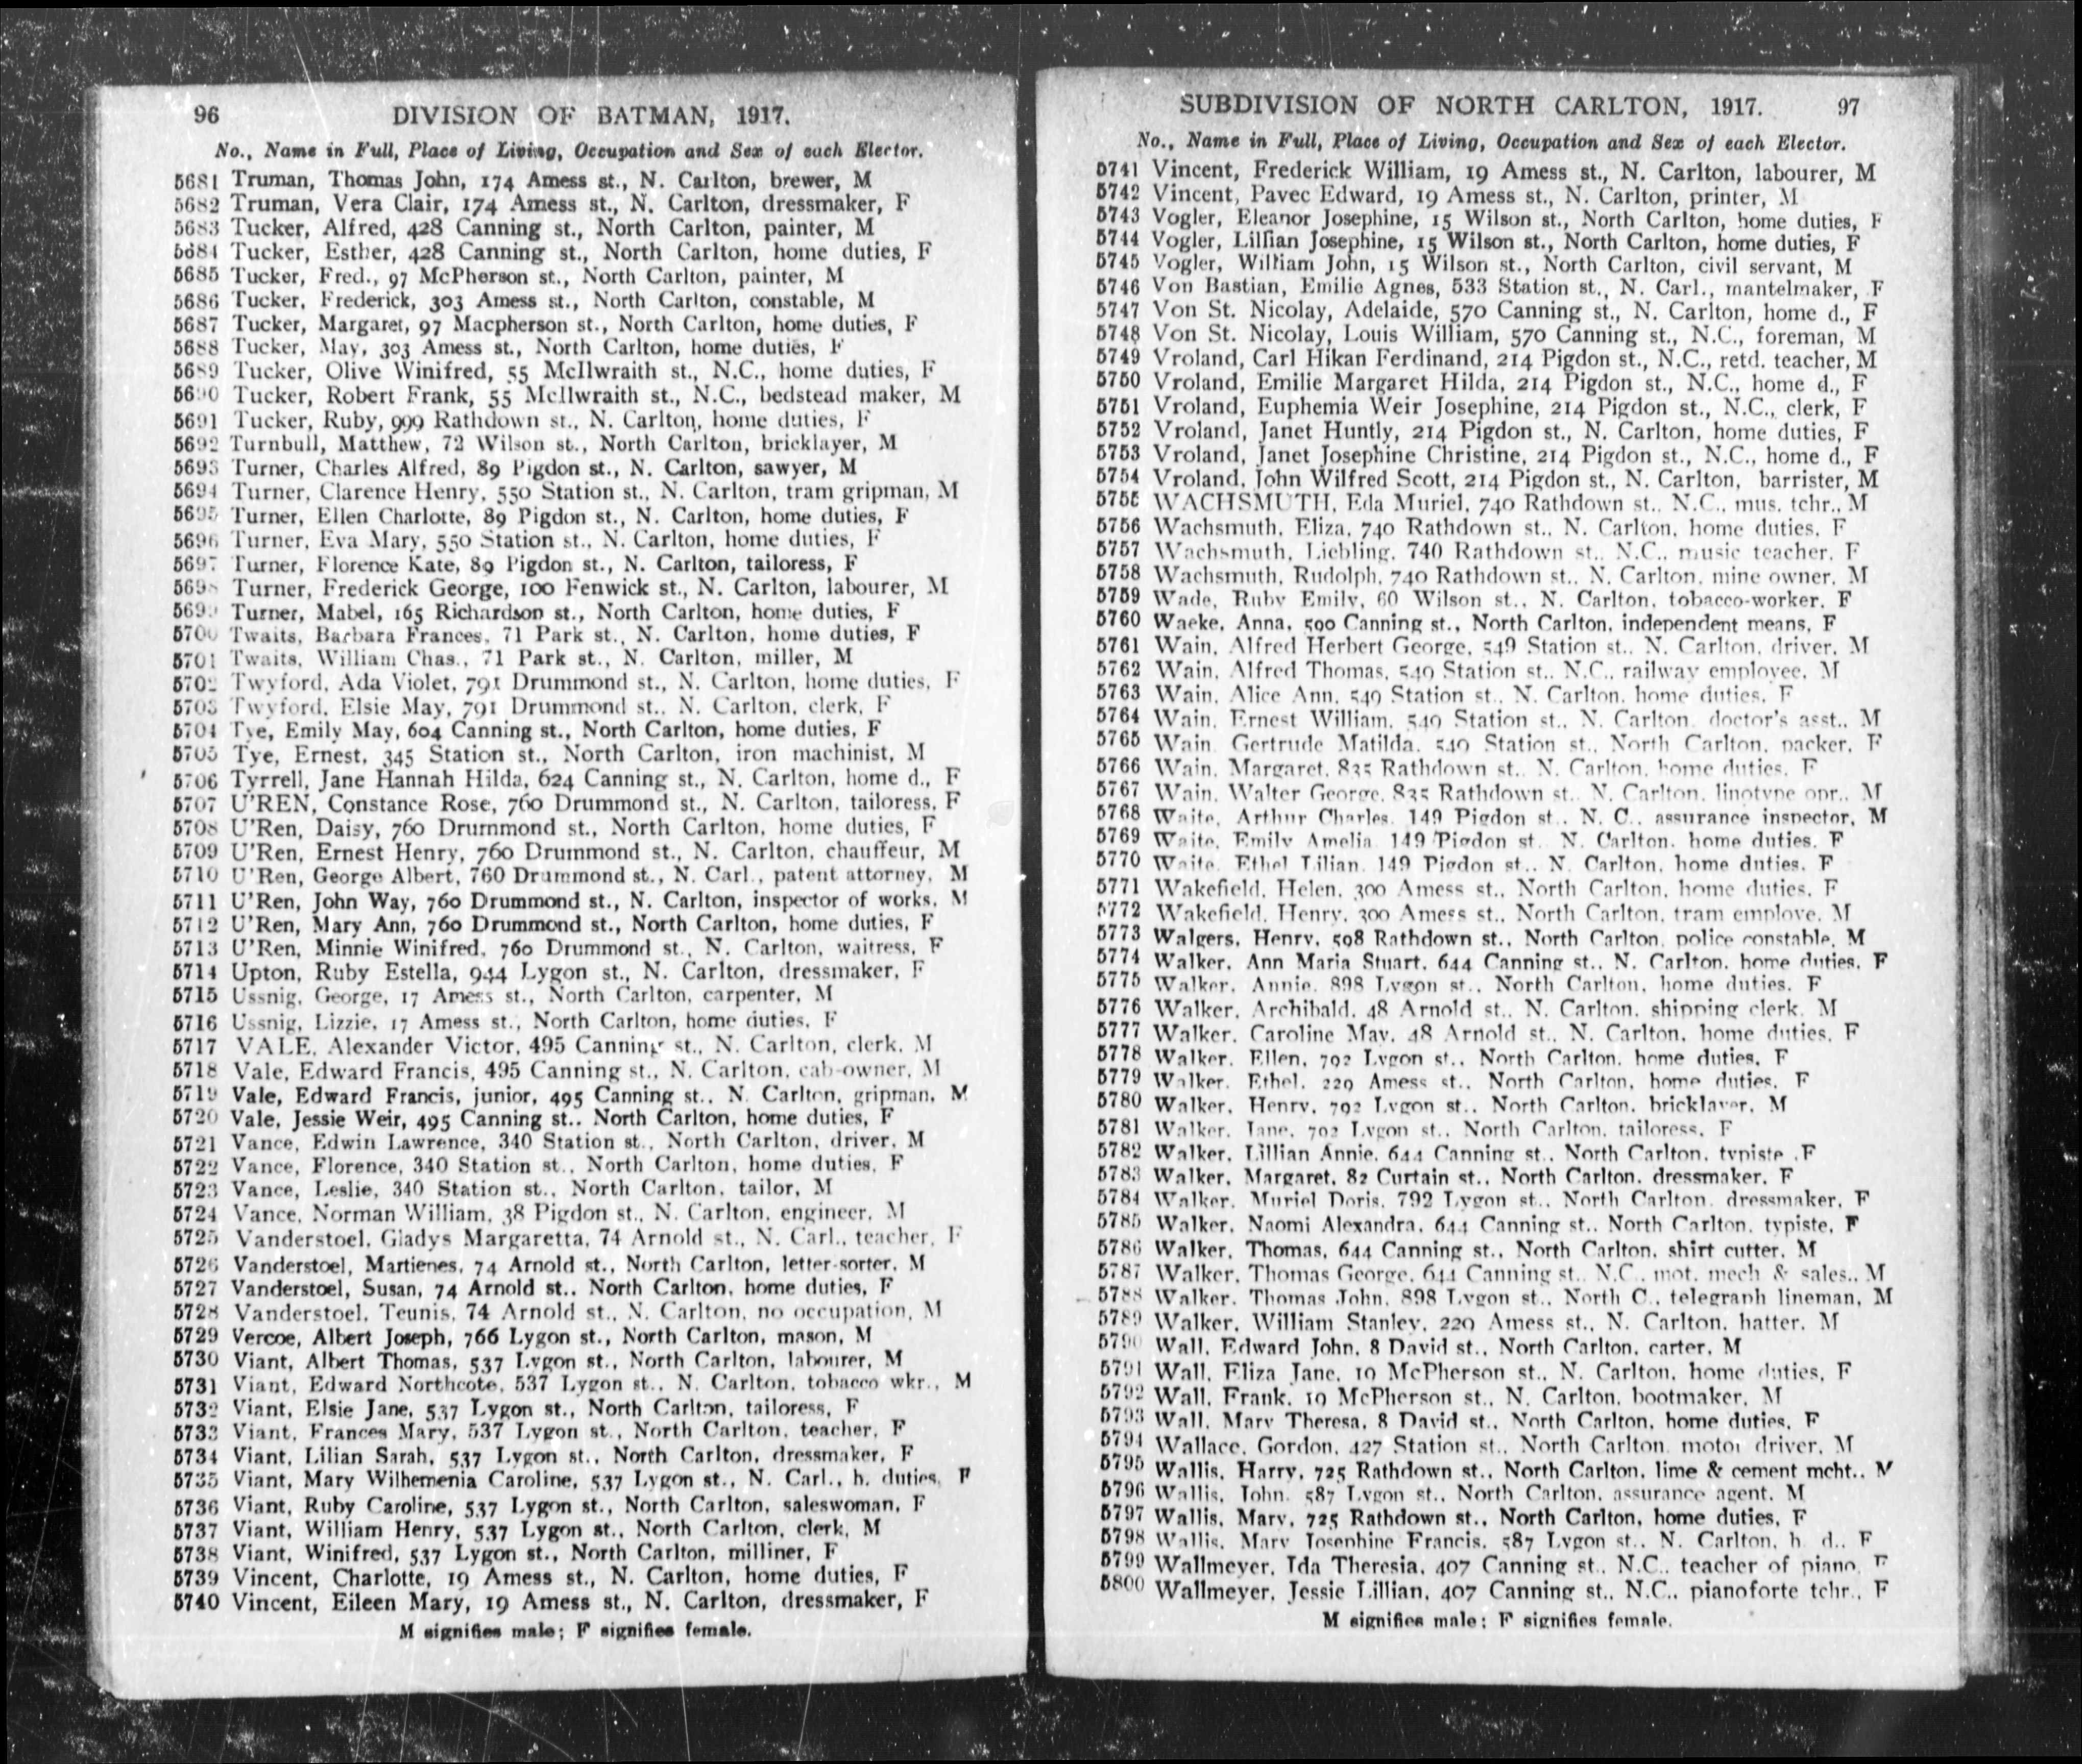 96 DIVISION OF BATMAN, 1917.
No., Name in Full, Place of Living, Occupation and Sex of each Elector.
5681 Truman, Thomas John, 174 Amess st., N. Carlton, brewer, M
5682 Truman, Vera Clair, 174 Amess st., N. Carlton, dressmaker, F
5683 Tucker, Alfred, 428 Canning st., North Carlton, painter, M
5684 Tucker, Esther, 428 Canning st., North Carlton, home duties, F
5685 Tucker, Fred., 97 McPherson st., North Carlton, painter, M
5686 Tucker, Frederick, 303 Amess st., North Carlton, constable, M
5687 Tucker, Margaret, 97 Macpherson st., North Carlton, home duties, F
5688 Tucker, May, 303 Amess st., North Carlton, home duties, F
5689 Tucker, Olive Winifred, 55 McIlwraith st., N.C., home duties, F
5690 Tucker, Robert Frank, 55 McIlwraith st., N.C., bedstead maker, M
5691 Tucker, Ruby, 999 Rathdown st., N. Carlton, home duties, F
5692 Turnbull, Matthew, 72 Wilson st., North Carlton, bricklayer, M
5693 Turner, Charles Alfred, 89 Pigdon st., N. Carlton, sawyer, M
5694 Turner, Clarence Henry, 550 Station st., N. Carlton, tram gripman, M
5695 Turner, Ellen Charlotte, 89 Pigdon st., N. Carlton, home duties, F
5696 Turner, Eva Mary, 550 Station st., N. Carlton, home duties, F
5697 Turner, Florence Kate, 89 Pigdon st., N. Carlton, tailoress, F
5698 Turner, Frederick George, 100 Fenwick st., N. Carlton, labourer, M
5699 Turner, Mabel, 165 Richardson st., North Carlton, home duties, F
5700 Twaits, Barbara Frances, 71 Park st., N. Carlton, home duties, F
5701 Twaits, William Chas., 71 Park st., N. Carlton, miller, M
5702 Twyford, Ada Violet, 791 Drummond st., N. Carlton, home duties, F
5703 Twyford, Elsie May, 791 Drummond st., N. Carlton, clerk, F
5704 Tye, Emily May, 604 Canning st., North Carlton, home duties, F
5705 Tye, Ernest, 345 Station st., North Carlton, iron machinist, M
5706 Tyrrell, Jane Hannah Hilda, 624 Canning st., N. Carlton, home d., F
5707 U'REN, Constance Rose, 760 Drummond st., N. Carlton, tailoress, F
5708 U'Ren, Daisy, 760 Drummond st., North Carlton, home duties, F
5709 U'Ren, Ernest Henry, 760 Drummond st., N. Carlton, chauffeur, M
5710 U'Ren, George Albert, 760 Drummond st., N. Carl., patent attorney, M
5711 U'Ren, John Way, 760 Drummond st., N. Carlton, inspector of works, M
5712 U'Ren, Mary Ann, 760 Drummond st., North Carlton, home duties, F
5713 U'Ren, Minnie Winifred, 760 Drummond st., N. Carlton, waitress, F
5714 Upton, Ruby Estella, 944 Lygon st., N. Carlton, dressmaker, F
5715 Ussnig, George, 17 Amess st., North Carlton, carpenter, M
5716 Ussnig, Lizzie, 17 Amess st., North Carlton, home duties, F
5717 VALE, Alexander Victor, 495 Canning st., N. Carlton, clerk, M
5718 Vale, Edward Francis, 495 Canning st., N. Carlton, cab-owner, M
5719 Vale, Edward Francis, junior, 495 Canning st., N. Carlton, gripman, M
5720 Vale, Jessie Weir, 495 Canning st., North Carlton, home duties, F
5721 Vance, Edwin Lawrence, 340 Station st., North Carlton, driver, M
5722 Vance, Florence, 340 Station st., North Carlton, home duties, F
5723 Vance, Leslie, 340 Station st., North Carlton, tailor, M
5724 Vance, Norman William, 38 Pigdon st., N. Carlton, engineer, M
5725 Vanderstoel, Gladys Margaretta, 74 Arnold st., N. Carl., teacher, F
5726 Vanderstoel, Martienes, 74 Arnold st., North Carlton, letter-sorter, M
5727 Vanderstoel, Susan, 74 Arnold st., North Carlton, home duties, F
5728 Vanderstoel, Teunis, 74 Arnold st., N. Carlton, no occupation, M
5729 Vercoe, Albert Joseph, 766 Lygon st., North Carlton, mason, M
5730 Viant, Albert Thomas, 537 Lygon st., North Carlton, labourer, M
5731 Viant, Edward Northcote, 537 Lygon st., N. Carlton, tobacco wkr., M
5732 Viant, Elsie Jane, 537 Lygon st., North Carlton, tailoress, F
5733 Viant, Frances Mary, 537 Lygon st., North Carlton, teacher, F
5734 Viant, Lilian Sarah, 537 Lygon st., North Carlton, dressmaker, F
5735 Viant, Mary Wilhemenia Caroline, 537 Lygon st., N. Carl., h. duties, F
5736 Viant, Ruby Caroline, 537 Lygon st., North Carlton, saleswoman, F
5737 Viant, William Henry, 537 Lygon st., North Carlton, clerk, M
5738 Viant, Winifred, 537 Lygon st., North Carlton, milliner, F
5739 Vincent, Charlotte, 19 Amess st., N. Carlton, home duties, F
5740 Vincent, Eileen Mary, 19 Amess st., N. Carlton, dressmaker, F
M signifies male; F signifies female.
SUBDIVISION OF NORTH CARLTON, 1917. 97
No., Name in Full, Place of Living, Occupation and Sex of each Elector.
5741 Vincent, Frederick William, 19 Amess st., N. Carlton, labourer, M
5742 Vincent, Pavec Edward, 19 Amess st., N. Carlton, printer, M
5743 Vogler, Eleanor Josephine, 15 Wilson st., North Carlton, home duties, F
5744 Vogler, Lillian Josephine, 15 Wilson st., North Carlton, home duties, F
5745 Vogler, William John, 15 Wilson st., North Carlton, civil servant, M
5746 Von Bastian, Emilie Agnes, 533 Station st., N. Carl., mantelmaker, F
5747 Von St. Nicolay, Adelaide, 570 Canning st., N. Carlton, home d., F
5748 Von St. Nicolay, Louis William, 570 Canning st., N.C., foreman, M
5749 Vroland, Carl Hikan Ferdinand, 214 Pigdon st., N.C., retd. teacher, M
5750 Vroland, Emilie Margaret Hilda, 214 Pigdon st., N.C., home d., F
5751 Vroland, Euphemia Weir Josephine, 214 Pigdon st., N.C., clerk, F
5752 Vroland, Janet Huntly, 214 Pigdon st., N. Carlton, home duties, F
5753 Vroland, Janet Josephine Christine, 214 Pigdon st., N.C., home d., F
5754 Vroland, John Wilfred Scott, 214 Pigdon st., N. Carlton, barrister, M
5755 WACHSMUTH, Eda Muriel, 740 Rathdown st., N.C., mus. tchr., M
5756 Wachsmuth, Eliza, 740 Rathdown st., N. Carlton, home duties, F
5757 Wachsmuth, Liebling, 740 Rathdown st., N.C., music teacher, F
5758 Wachsmuth, Rudolph, 740 Rathdown st., N. Carlton, mine owner, M
5759 Wade, Ruby Emily, 60 Wilson st., N. Carlton, tobacco-worker, F
5760 Waeke, Anna, 500 Canning st., North Carlton, independent means, F
5761 Wain, Alfred Herbert George, 549 Station st., N. Carlton, driver, M
5762 Wain, Alfred Thomas, 549 Station st., N.C., railway employee, M
5763 Wain, Alice Ann, 549 Station st., N. Carlton, home duties, F
5764 Wain, Ernest William, 549 Station st., N. Carlton, doctor's asst., M
5765 Wain, Gertrude Matilda, 549 Station st., North Carlton, packer, F
5766 Wain, Margaret, 835 Rathdown st., N. Carlton, home duties, F
5767 Wain, Walter George, 835 Rathdown st., N. Carlton, linotype opr., M
5768 Waite, Arthur Charles, 149 Pigdon st., N. C., assurance inspector, M
5769 Waite, Emily Amelia, 149 Pigdon st., N. Carlton, home duties, F
5770 Waite, Ethel Lilian, 149 Pigdon st., N. Carlton, home duties, F
5771 Wakefield, Helen, 300 Amess st., North Carlton, home duties, F
5772 Wakefield, Henry, 300 Amess st., North Carlton, tram employe, M
5773 Walgers, Henry, 598 Rathdown st., North Carlton, police constable, M
5774 Walker, Ann Maria Stuart, 644 Canning st., N. Carlton, home duties, F
5775 Walker, Annie, 898 Lygon st., North Carlton, home duties, F
5776 Walker, Archibald, 48 Arnold st., N. Carlton, shipping clerk, M
5777 Walker, Caroline May, 48 Arnold st., N. Carlton, home duties, F
5778 Walker, Ellen, 792 Lygon st., North Carlton, home duties, F
5779 Walker, Ethel, 229 Amess st., North Carlton, home duties, F
5780 Walker, Henry, 792 Lygon st., North Carlton, bricklayer, M
5781 Walker, Jane, 792 Lygon st., North Carlton, tailoress, F
5782 Walker, Lillian Annie, 644 Canning st., North Carlton, typiste ,F
5783 Walker, Margaret, 82 Curtain st., North Carlton, dressmaker, F
5784 Walker, Muriel Doris, 792 Lygon st., North Carlton, dressmaker, F
5785 Walker, Naomi Alexandra, 644 Canning st., North Carlton, typiste, F
5786 Walker, Thomas, 644 Canning st., North Carlton, shirt cutter, M
5787 Walker, Thomas George, 644 Canning st., N.C., mot. mech & sales., M
5788 Walker, Thomas John, 898 Lygon st., North C., telegraph lineman, M
5789 Walker, William Stanley, 229 Amess st., N. Carlton, hatter, M
5790 Wall, Edward John, 8 David st., North Carlton, carter, M
5791 Wall, Eliza Jane, 19 McPherson st., N. Carlton, home duties, F
5792 Wall, Frank, 19 McPherson st., N. Carlton, bootmaker, M
5793 Wall, Mary Theresa, 8 David st., North Carlton, home duties, F
5794 Wallace, Gordon, 427 Station st., North Carlton, motor driver, M
5795 Wallis, Harry, 725 Rathdown st., North Carlton, lime & cement mcht., M
5796 Wallis, John, 587 Lygon st., North Carlton, assurance agent, M
5797 Wallis, Mary, 725 Rathdown st., North Carlton, home duties, F
5798 Wallis, Mary Josephine Francis, 587 Lygon st., N. Carlton, h. d., F
5799 Wallmeyer, Ida Theresia, 407 Canning st., N.C., teacher of piano, F
5800 Wallmeyer, Jessie Lillian, 407 Canning st., N.C., pianoforte tchr., F
M signifies male; F signifies female.